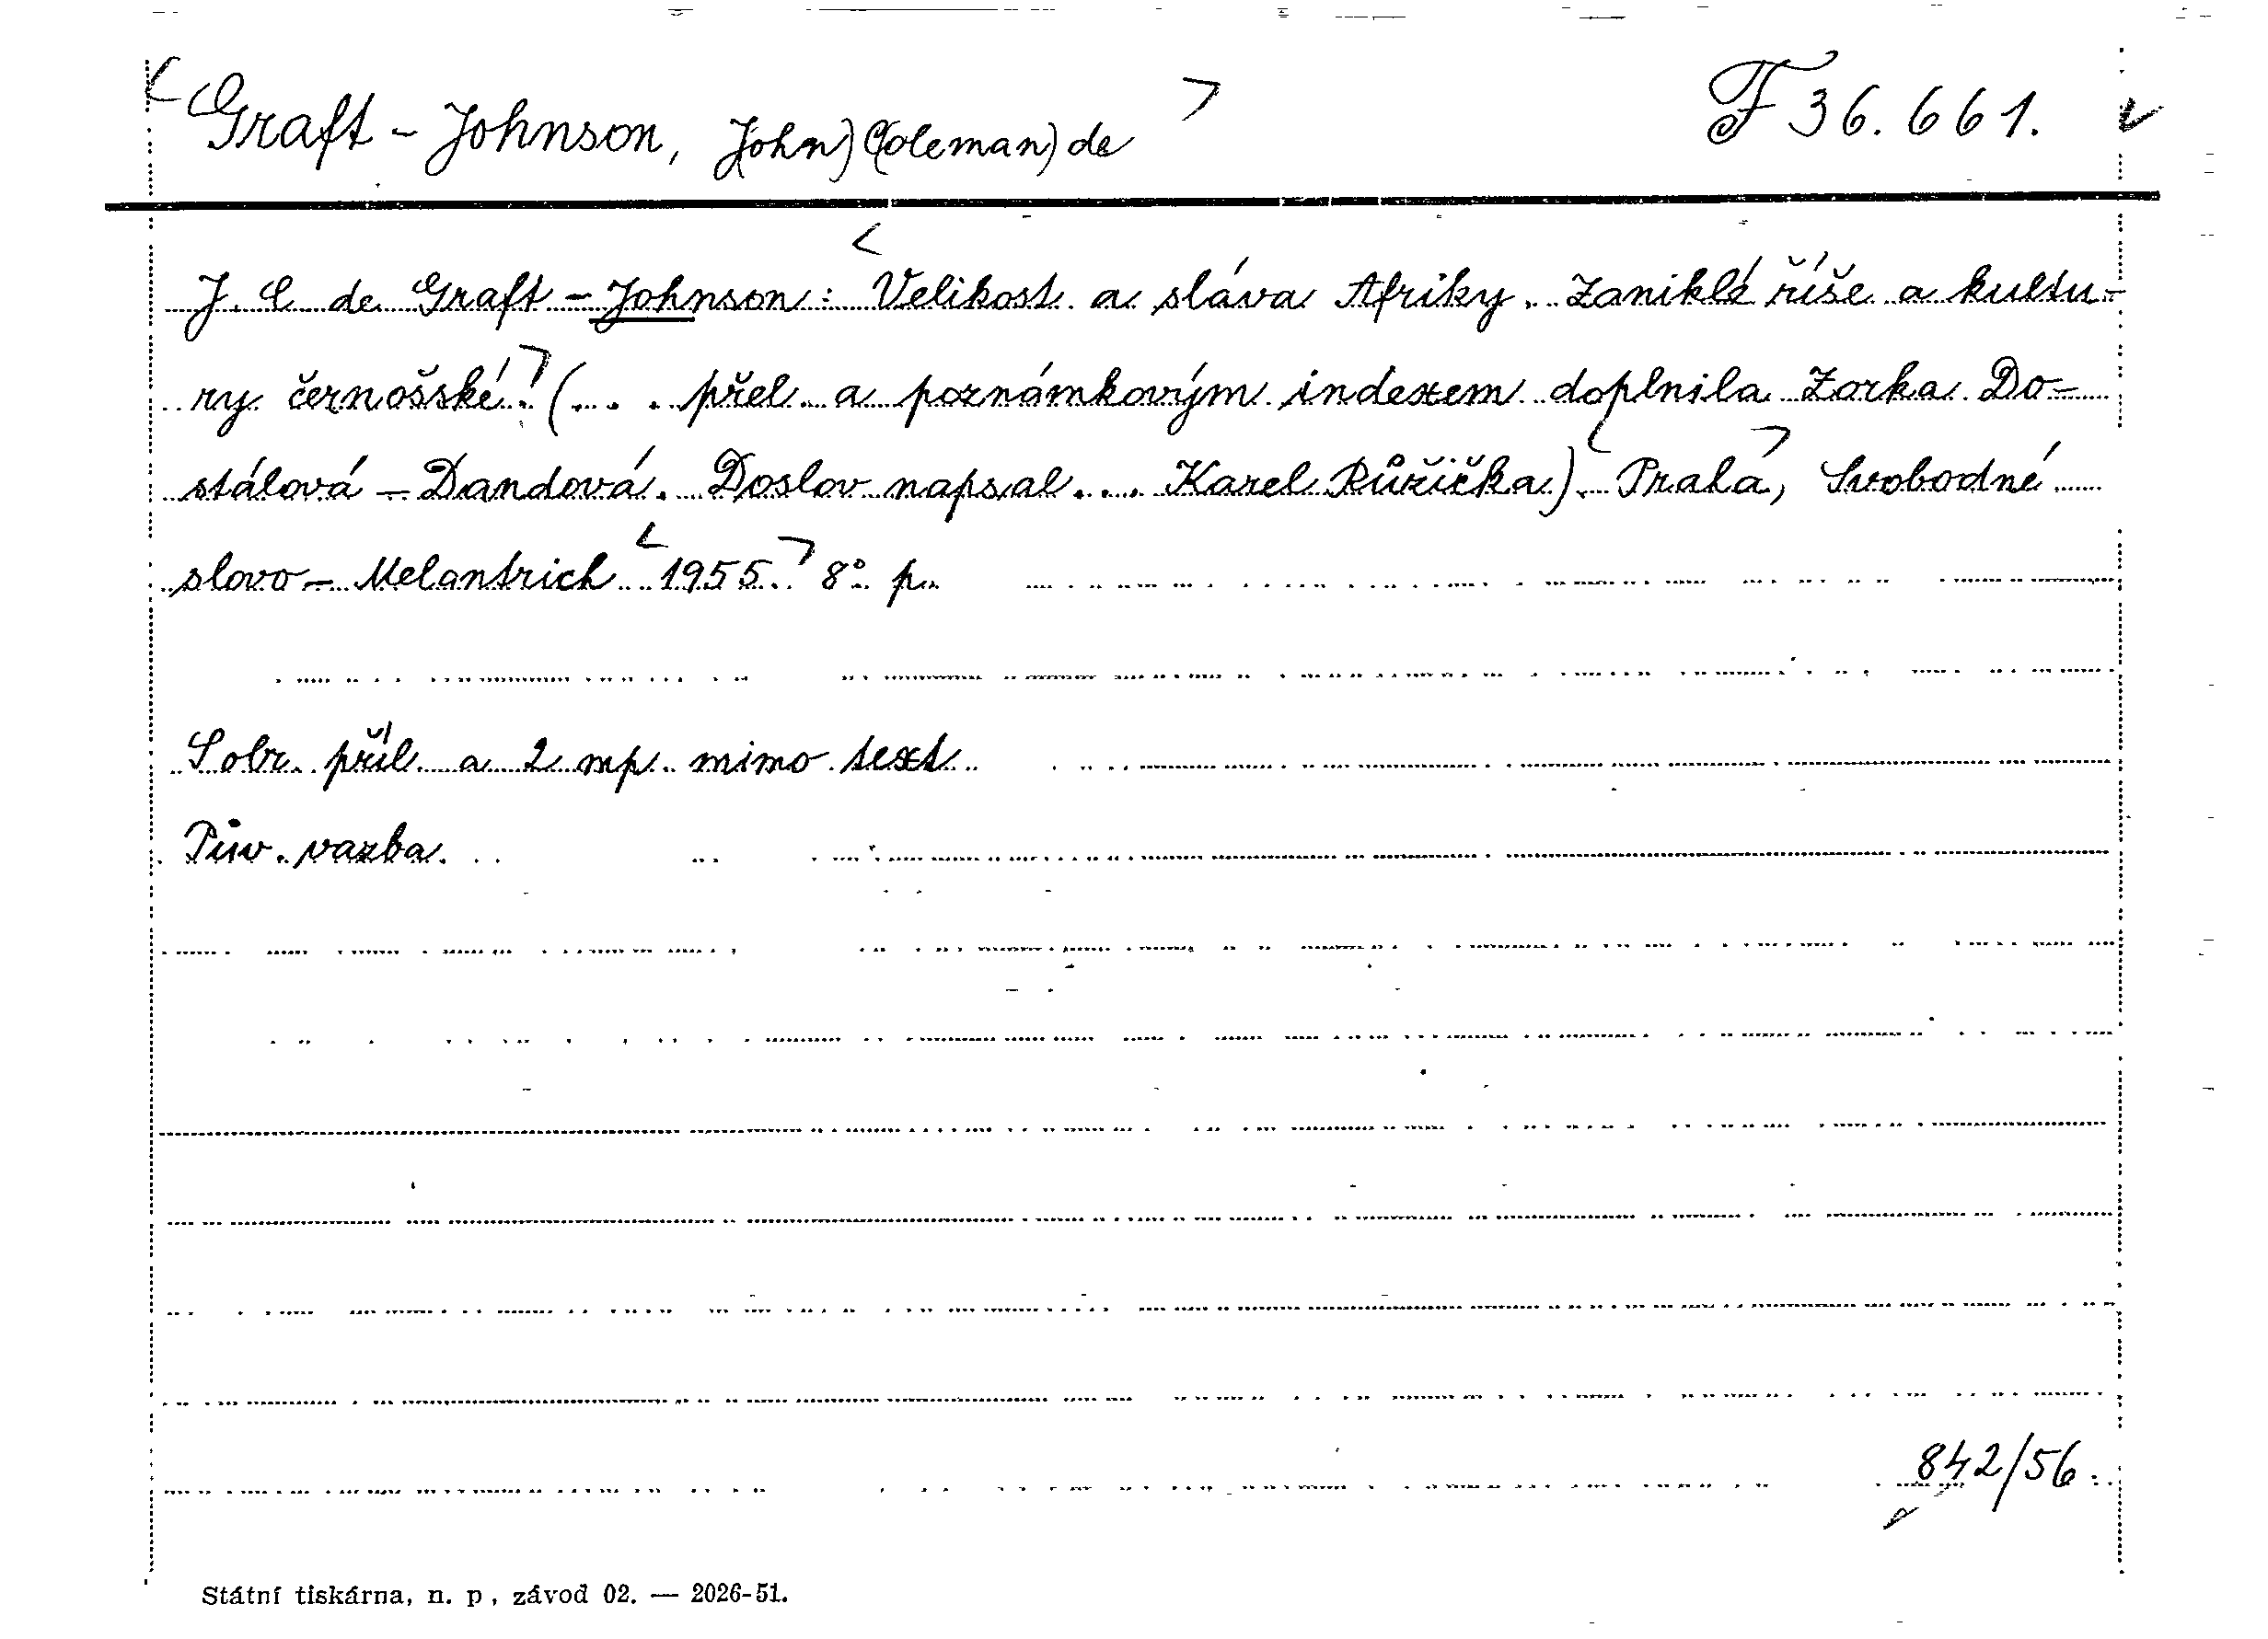 Graft - Johnson, J(ohn) C(oleman) de F 36.661.
J. C. de Graft - Johnson: Velikost a sláva Afriky. Zaniklé říše a kultu-
ry černošské. (... přel. a poznámkovým indexem doplnila Zorka Do-
stálová - Dandová. Doslov napsal ... Karel Růžička). Praha, Svobodné
slovo - Melantrich 1955. 8° p.
S obr. příl. a 2 mp. mimo text
Pův. vazba.
842/56.
Státní tiskárna, n. p., závod 02. — 2026-51.